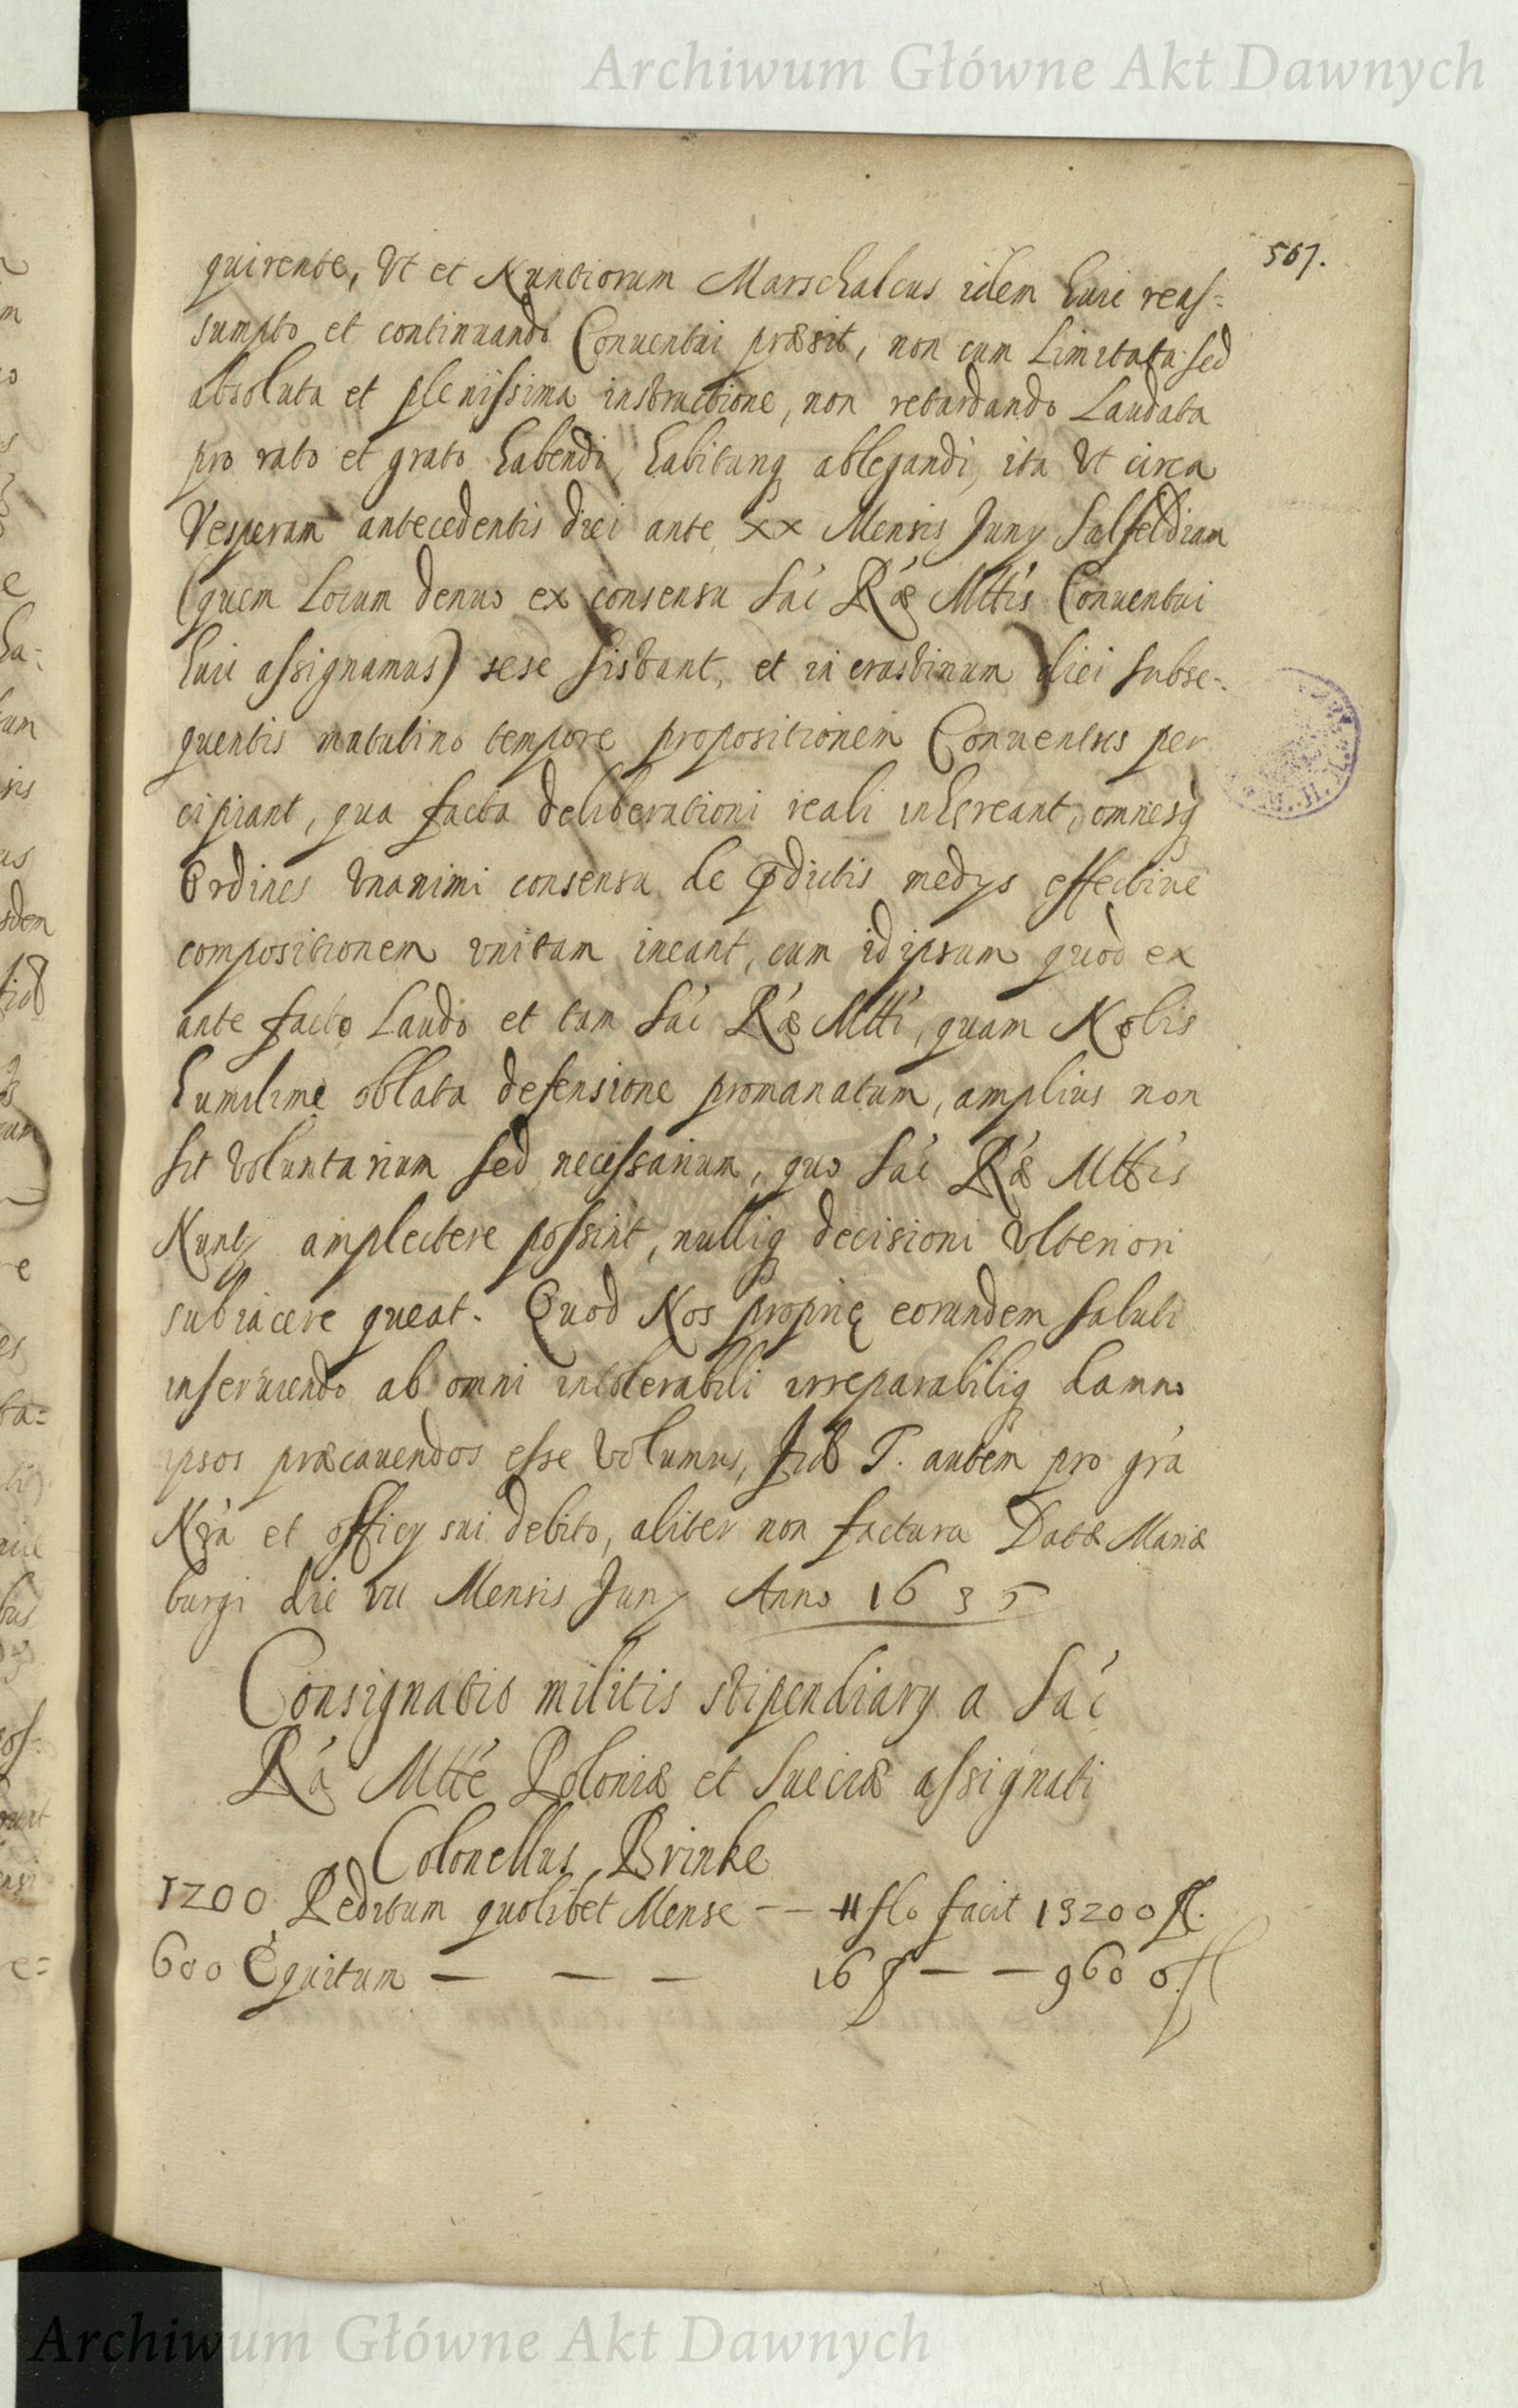 Archiwum Główne Akt Dawnych
567.
quirente, Vt et Nuntiorum Marschalcus idem huic reas=
sumpto et continuando Conuentui præsit, non cum Limitata sed
absoluta et plenissima instructione, non retardando Laudata
pro rato et grato habendi, habitumq ablegandi, ita Vt circa
Vesperam antecedentis diei ante XX Mensis Juny Salfeldiam
(quem Locum denuo ex consensu Sac Ræ Mttis Conuentui
huic assignamus) sese sistant, et in crastinum diei subse=
quentis matutino tempore propositionem Conuentus per
cipiant, qua facta deliberationi reali inhereant, omnesq
Ordines Vnanimi consensu de pdictis medys effectiue
compositionem vnitam ineant, cum id ipsum quod ex
ante facto Laudo et tam Sac Ræ Mtti, quam Nobis
humilime oblata defensione promanatum, amplius non
sit Voluntarium sed necessarium, quo Sac Ræ Mttis
Nunty amplectere possint, nulliq decisioni Vlteriori
subiacere queat. Quod Nos proprię eorundem saluti
inseruiendo ab omni intolerabili irreparabiliq damno
ipsos præcauendos esse Volumus, T. autem pro gra
Nra et officy sui debito, aliter non factura Datæ Mariæ
burgi die VII Mensis Juny Anno 1635
Consignatio militis stipendiary a Sac
Ra Mtte Poloniæ et Sueciæ assignati
Colonellus Brinke
1200 Peditum quolibet Mense – – 11 flo facit 13200 fl.
600 Equitum – – – 16 f – – 9600 fl
Archiwum Główne Akt Dawnych